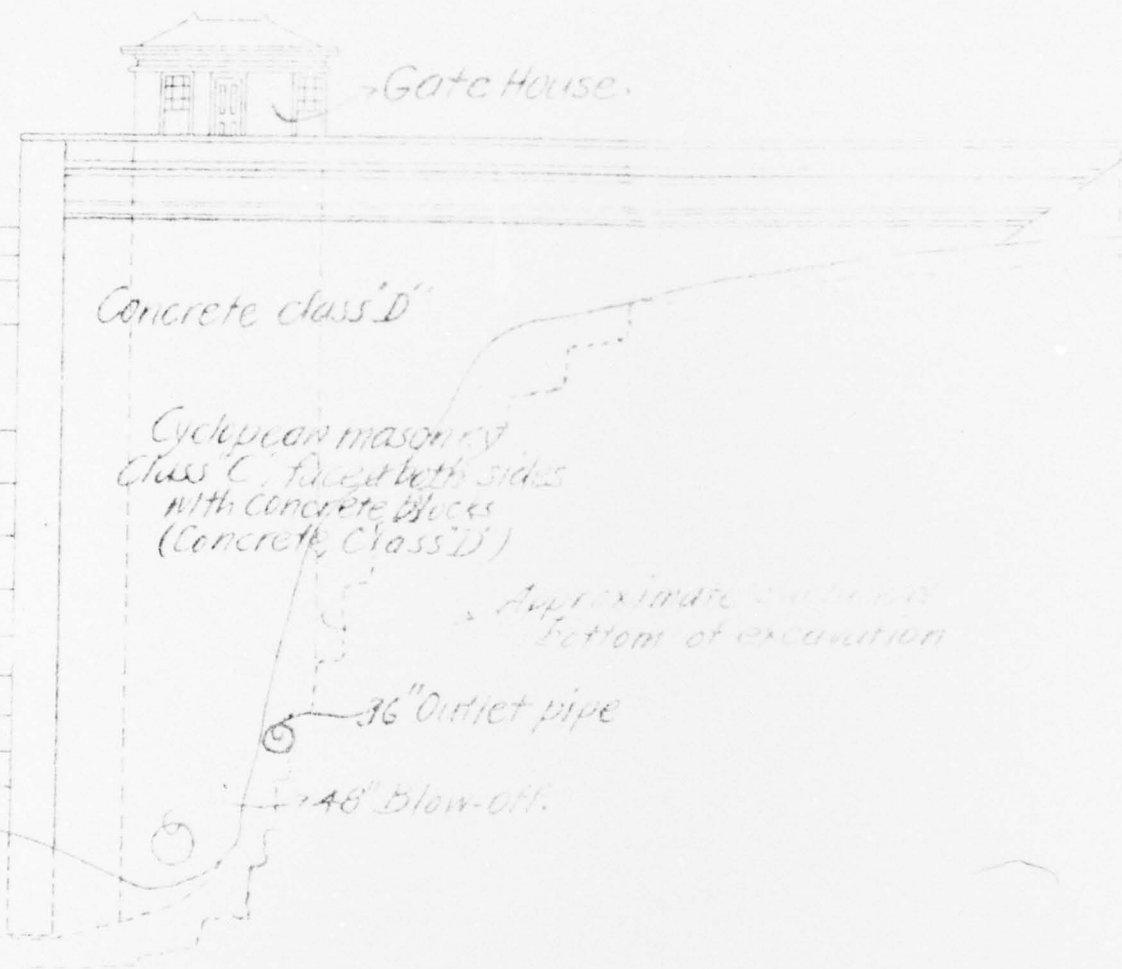 Gate House.
Concrete class "D"
Cyclopean masonry
Class "C", faced both sides
with concrete blocks
(Concrete, Class "D")
Approximate
bottom of excavation
36" Outlet pipe
48" Blow-off.